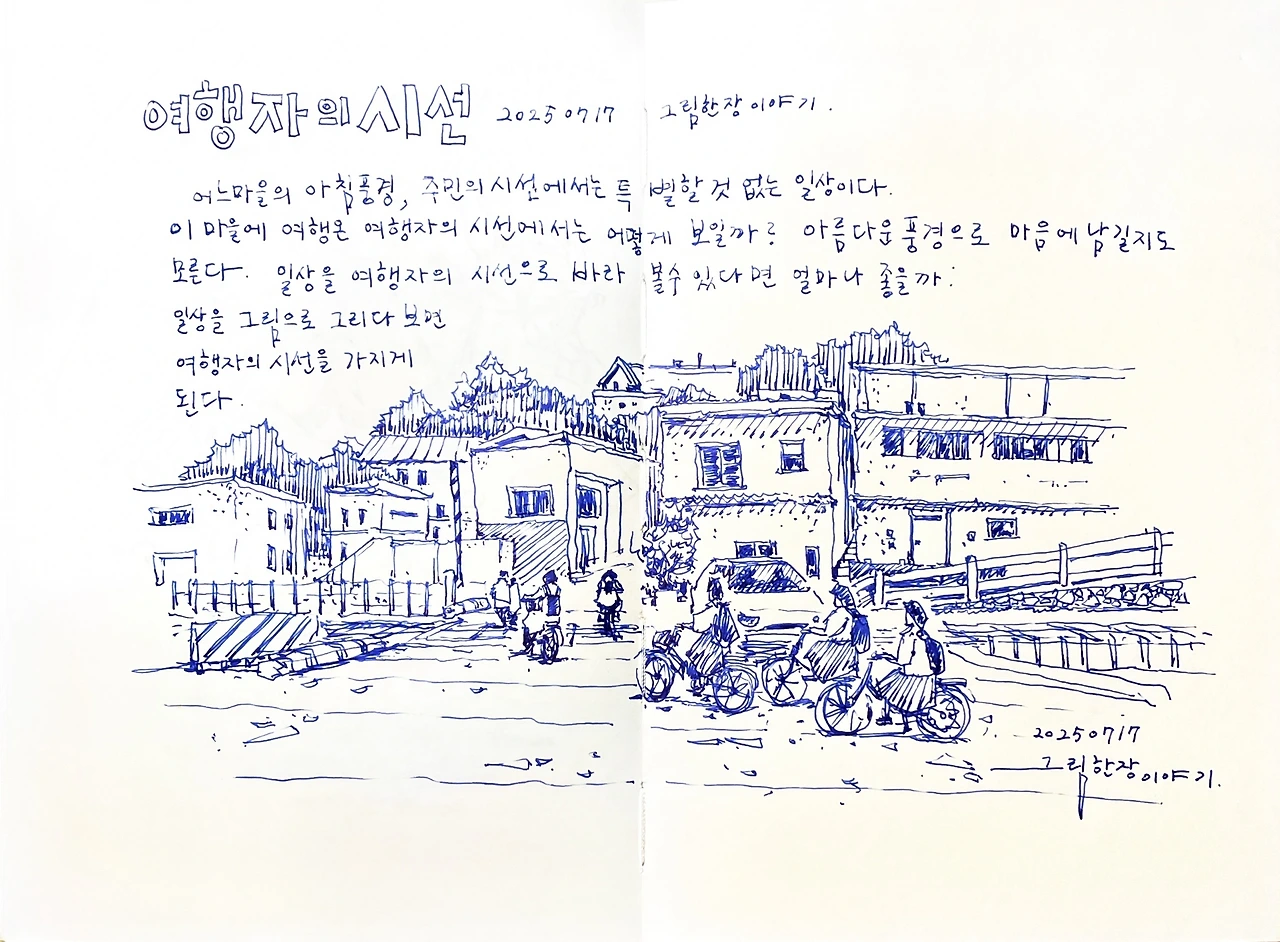 여행자의 시선 20250717 그림한장이야기.
어느마을의 아침풍경, 주민의시선에서는 특별할것 없는 일상이다.
이 마을에 여행온 여행자의 시선에서는 어떻게 보일까? 아름다운풍경으로 마음에남길지도
모른다. 일상을 여행자의 시선으로 바라볼수있다면 얼마나 좋을까?
일상을 그림으로 그리다보면
여행자의시선을 가지게
된다.
20250717
그림한장이야기.